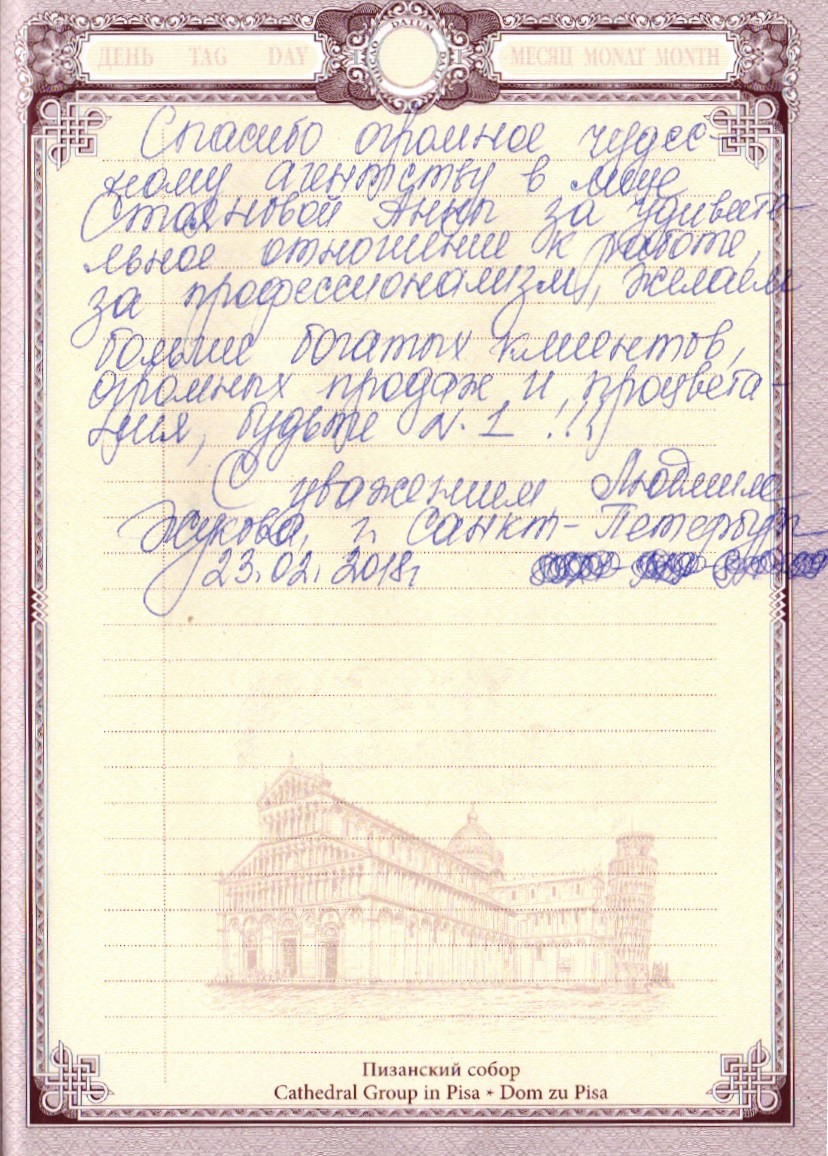 ДЕНЬ TAG DAY
DATUM
МЕСЯЦ MONAT MONTH
Спасибо огромное чудес-
ному агентству в лице
Стояновой Анны за удивите-
льное отношение к работе,
за профессионализм, желаем
больше богатых клиентов,
огромных продаж и процвета-
ния, будьте N.1 !!!
С уважением Людмила
Жукова, г. Санкт-Петербург
23.02.2018г
Пизанский собор
Cathedral Group in Pisa * Dom zu Pisa